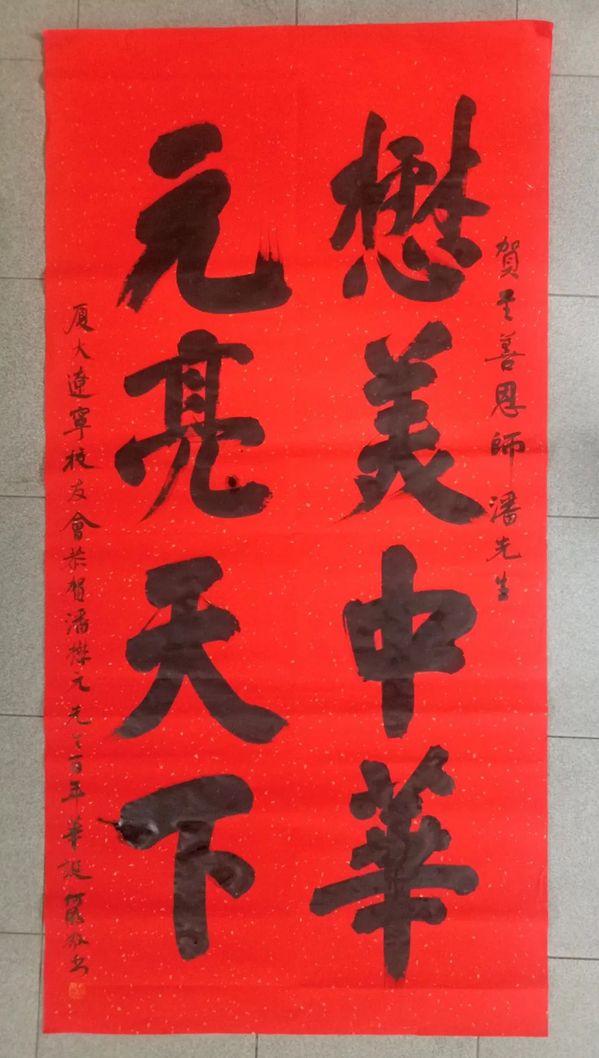 賀至善恩師潘先生
懋美中華
元亮天下
厦大遼寧校友會恭賀潘懋元先生百年華誕